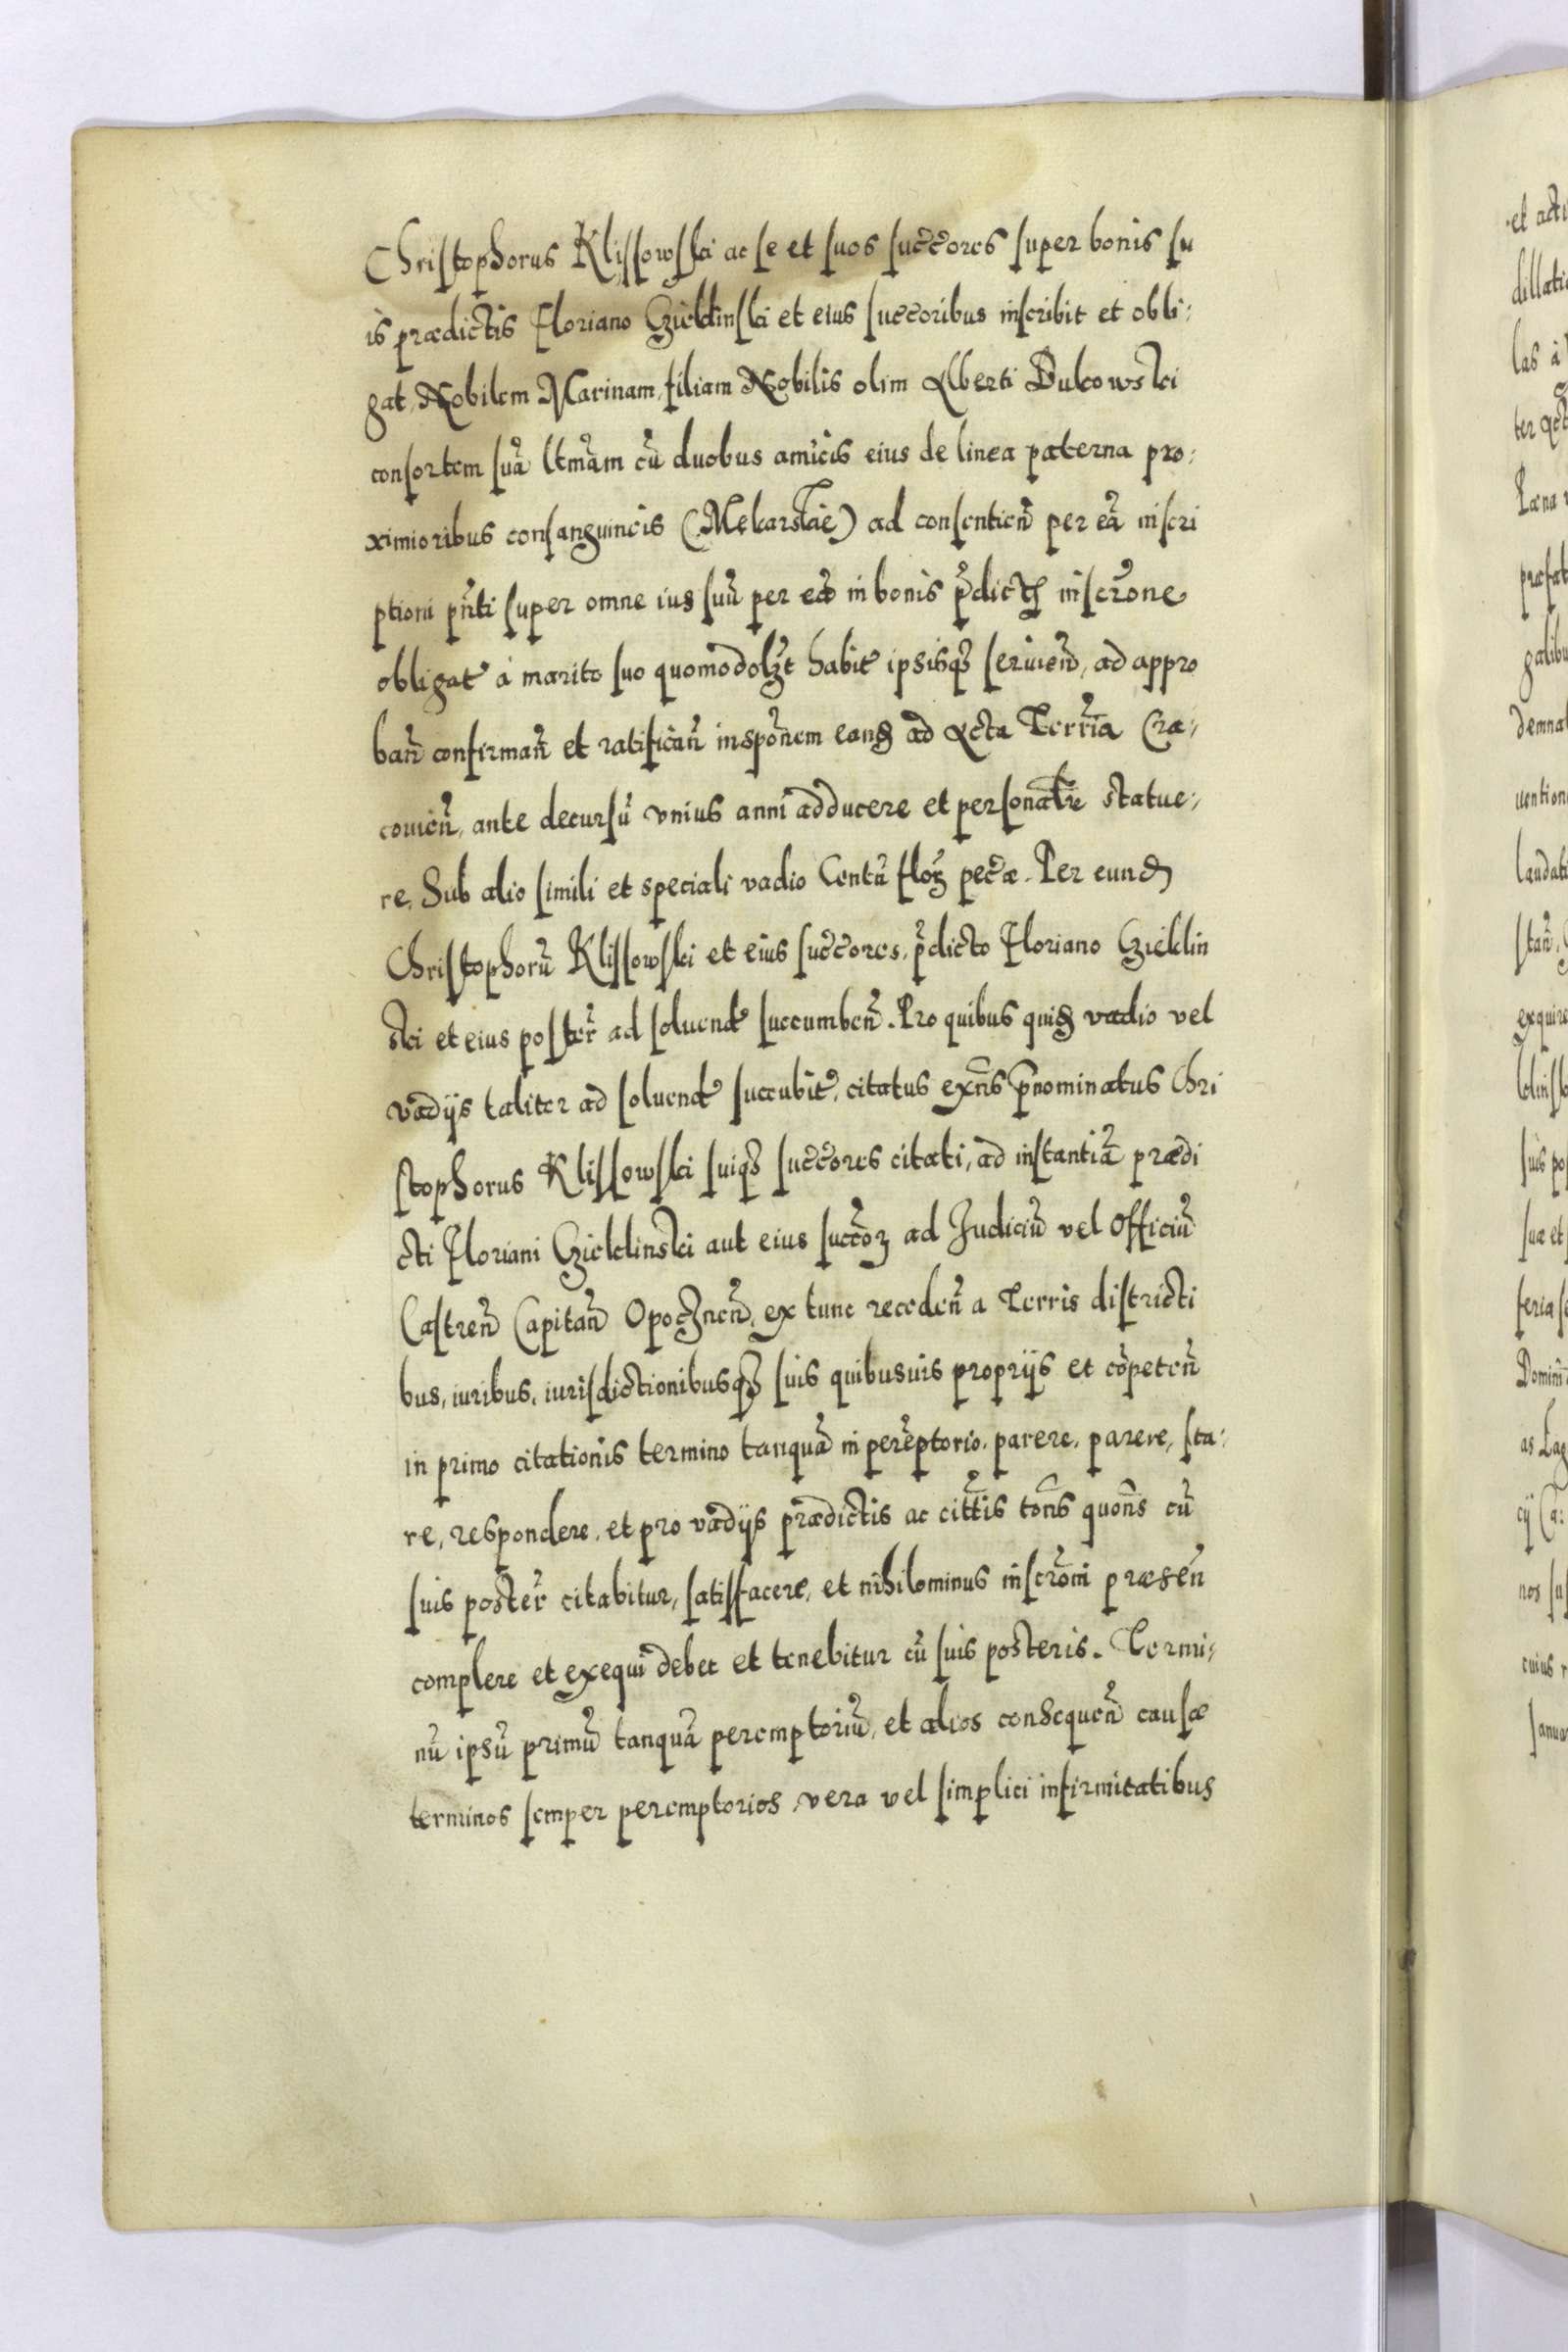 Christophorus Klissowski ac se et suos succ̃ores super bonis su
is prædictis Floriano Czieklinski et eius succoribus inscribit et obli:
gat, Nobilem Marinam, filiam Nobilis olim Alberti Bukowski
consortem suã ltm̃am cũ duobus amicis eius de linea paterna pro:
ximioribus consanguineis (Mekarskie) ad consentieñ per eã inscri
ptioni pñti super omne ius suũ per eã in bonis p̃dictis inscr̃one
obligat̃ à marito suo quomodolz̃t habit̃ ipsisq̃ seruieñ, ad appro
bañ confirmañ et ratificañ inspõnem eand ad Acta Terrr̃ia Cra:
couieñ, ante decursũ vnius anni adducere et personalr̃ statue:
re, Sub alio simili et speciali vadio Centũ floꝝ pec̃æ. Per eund
Christophorũ Klissowski et eius succ̃ores, p̃dicto Floriano Czieklin
ski et eius poster̃ ad soluend̃ succumbeñ. Pro quibus quid vadio vel
vadijs taliter ad soluend̃ succubit̃, citatus exñs p̃nominatus Chri
stophorus Klissowski suiq̃ succ̃ores citati, ad instantiã prædi
cti Floriani Czieklinski aut eius succoꝝ ad Judiciũ vel Officiũ
Castreñ Capitañ Opoczneñ, ex tunc recedeñ a Terris districti
bus, iuribus, iurisdictionibusq̃ suis quibusuis proprijs et cõpeteñ
in primo citationis termino tanquã in perẽptorio, parere, parere, sta:
re, respondere, et pro vadijs prædictis ac citt̃is tõns quoñs cũ
suis poster̃ citabitur, satisfacere, et nihilominus inscrõni præseñ
complere et exequi debet et tenebitur cũ suis posteris. Termi:
nũ ipsũ primũ tanquã peremptoriũ, et alios consequeñ causæ
terminos semper peremptorios, vera vel simplici infirmitatibus